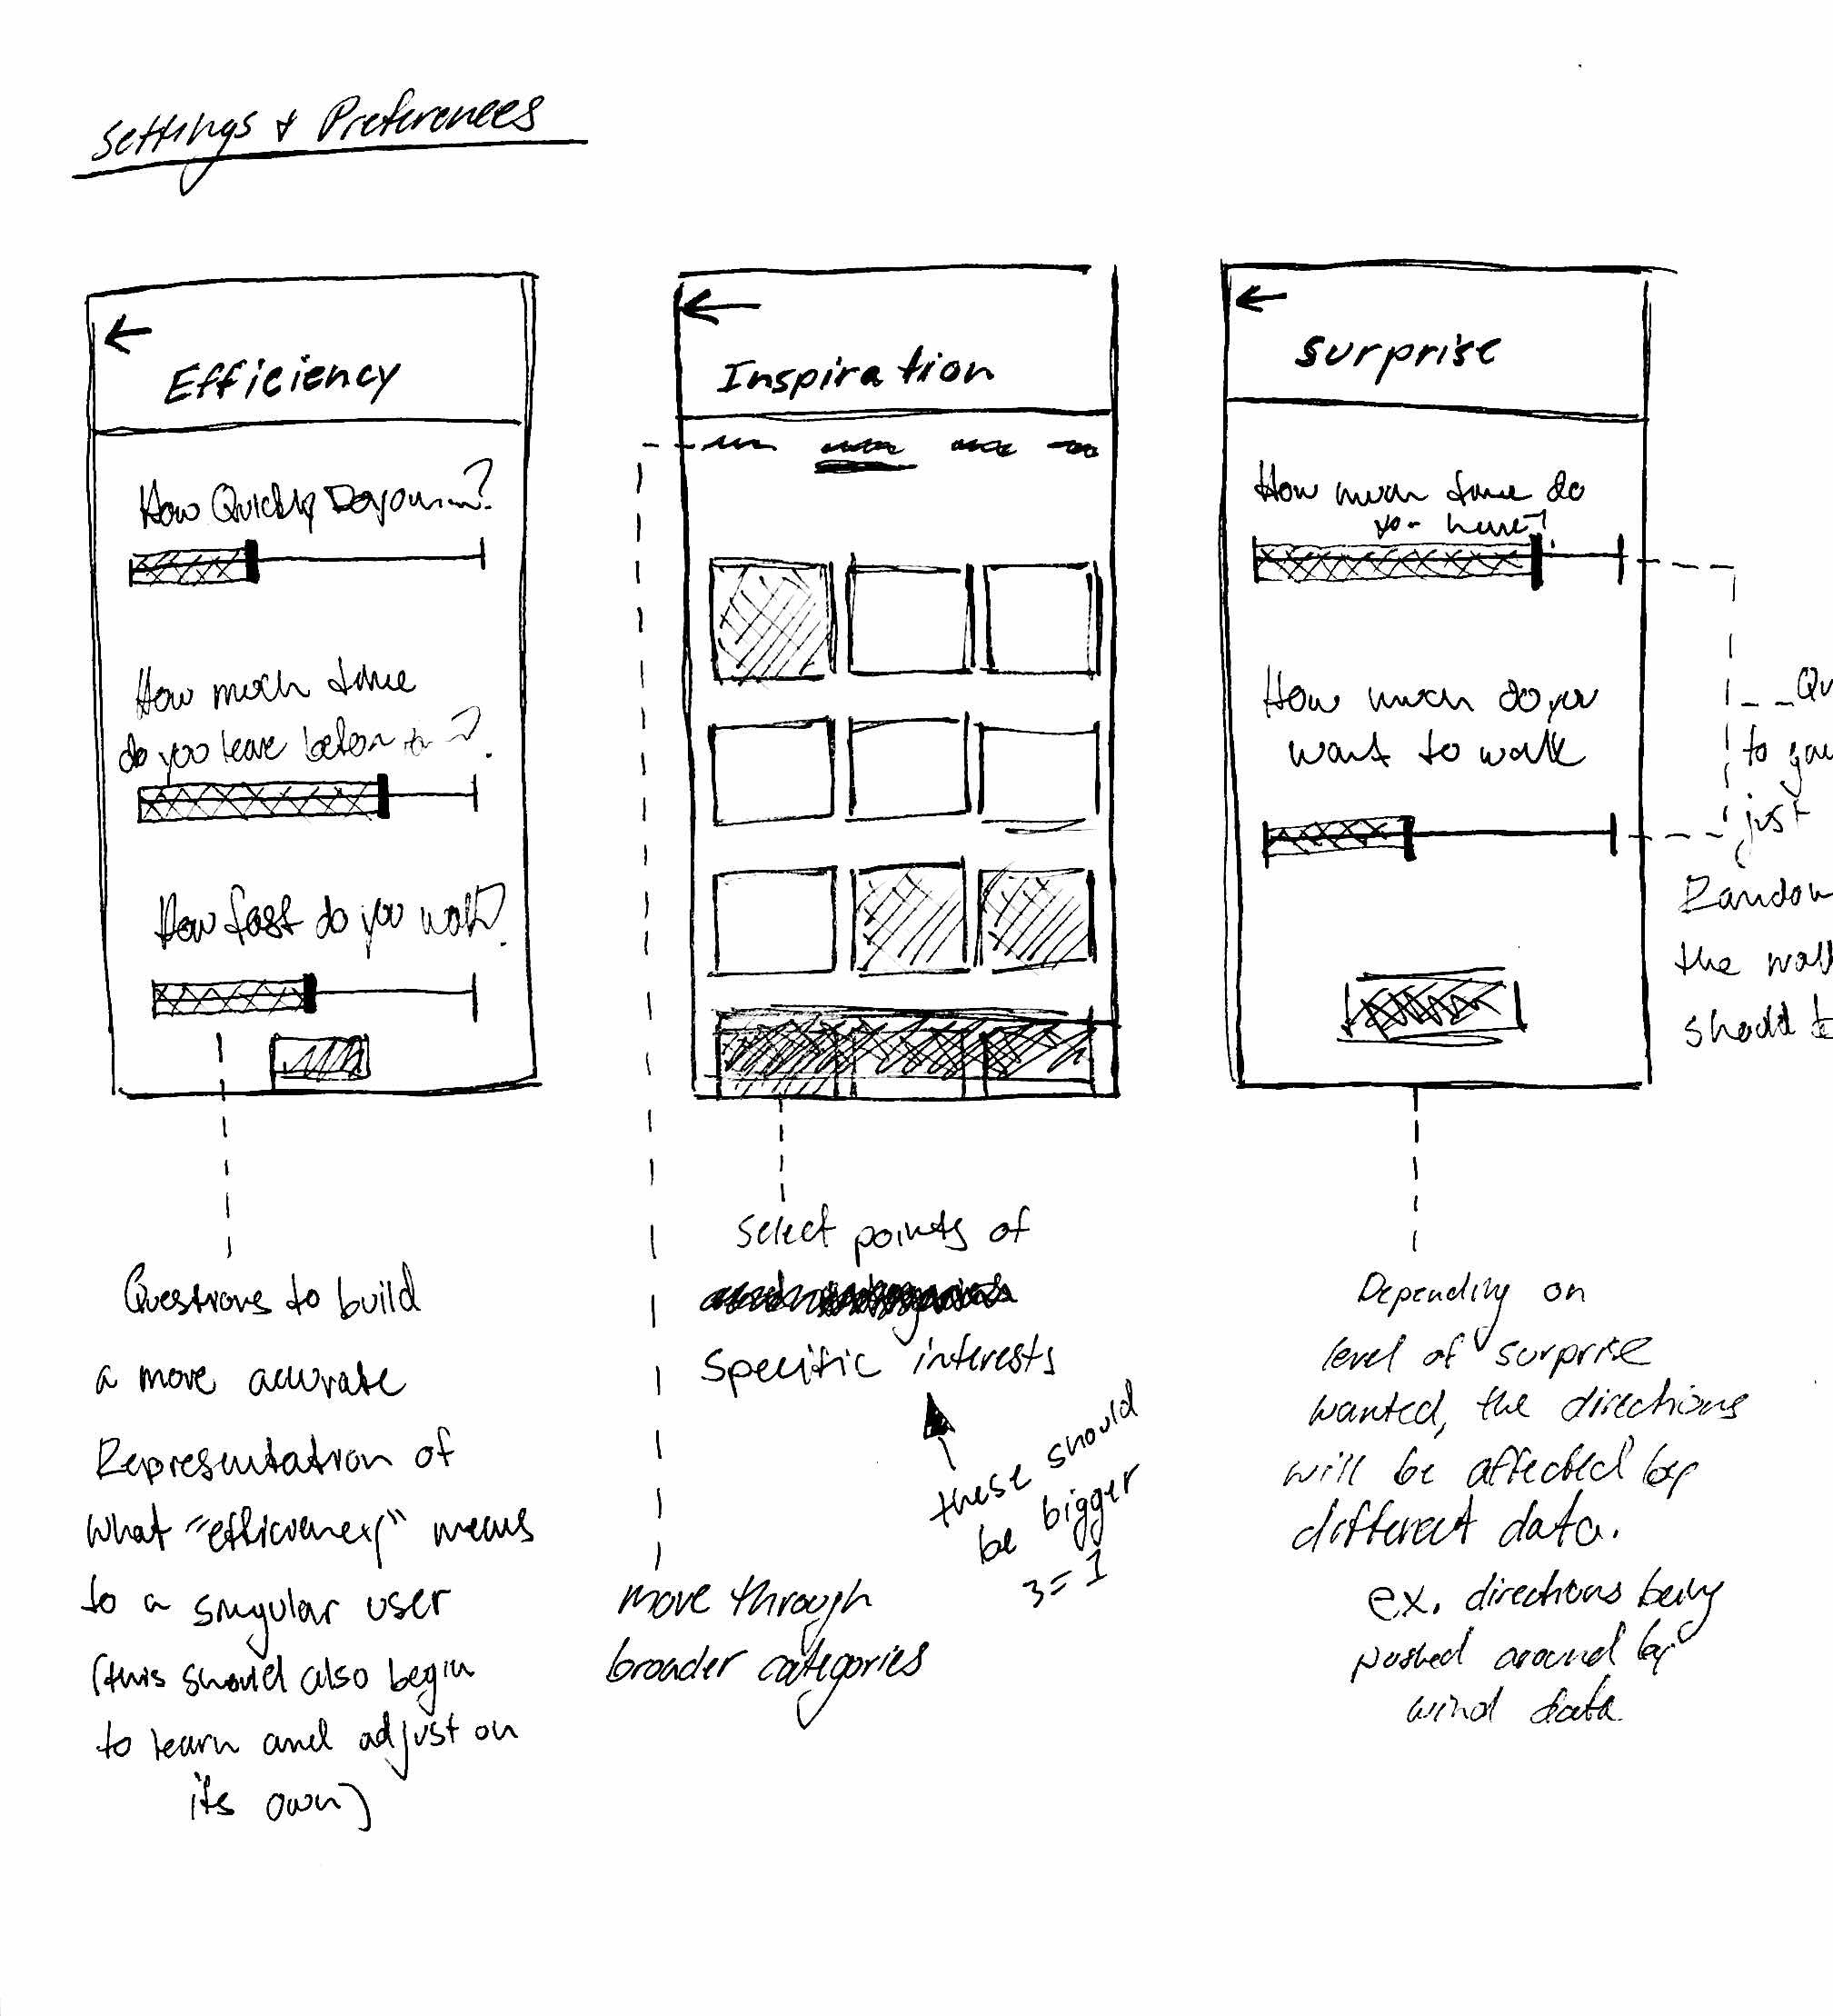 Settings & Preferences
Efficiency
How Quickly Do you
How much time
do you leave
How fast do you walk?
Questions to build
a more accurate
Representation of
what "efficiency" means
to a singular user
(this should also begin
to learn and adjust on
its own)
Inspiration
Select points of
Specific interests
these should
be bigger
3=1
move through
broader categories
Surprise
How much time do
you have?
How much do you
want to walk
Qu
to gau
just
Random
the wal
should b
Depending on
level of surprise
wanted, the directions
will be affected by
different data.
ex. directions being
pushed around by
wind data.